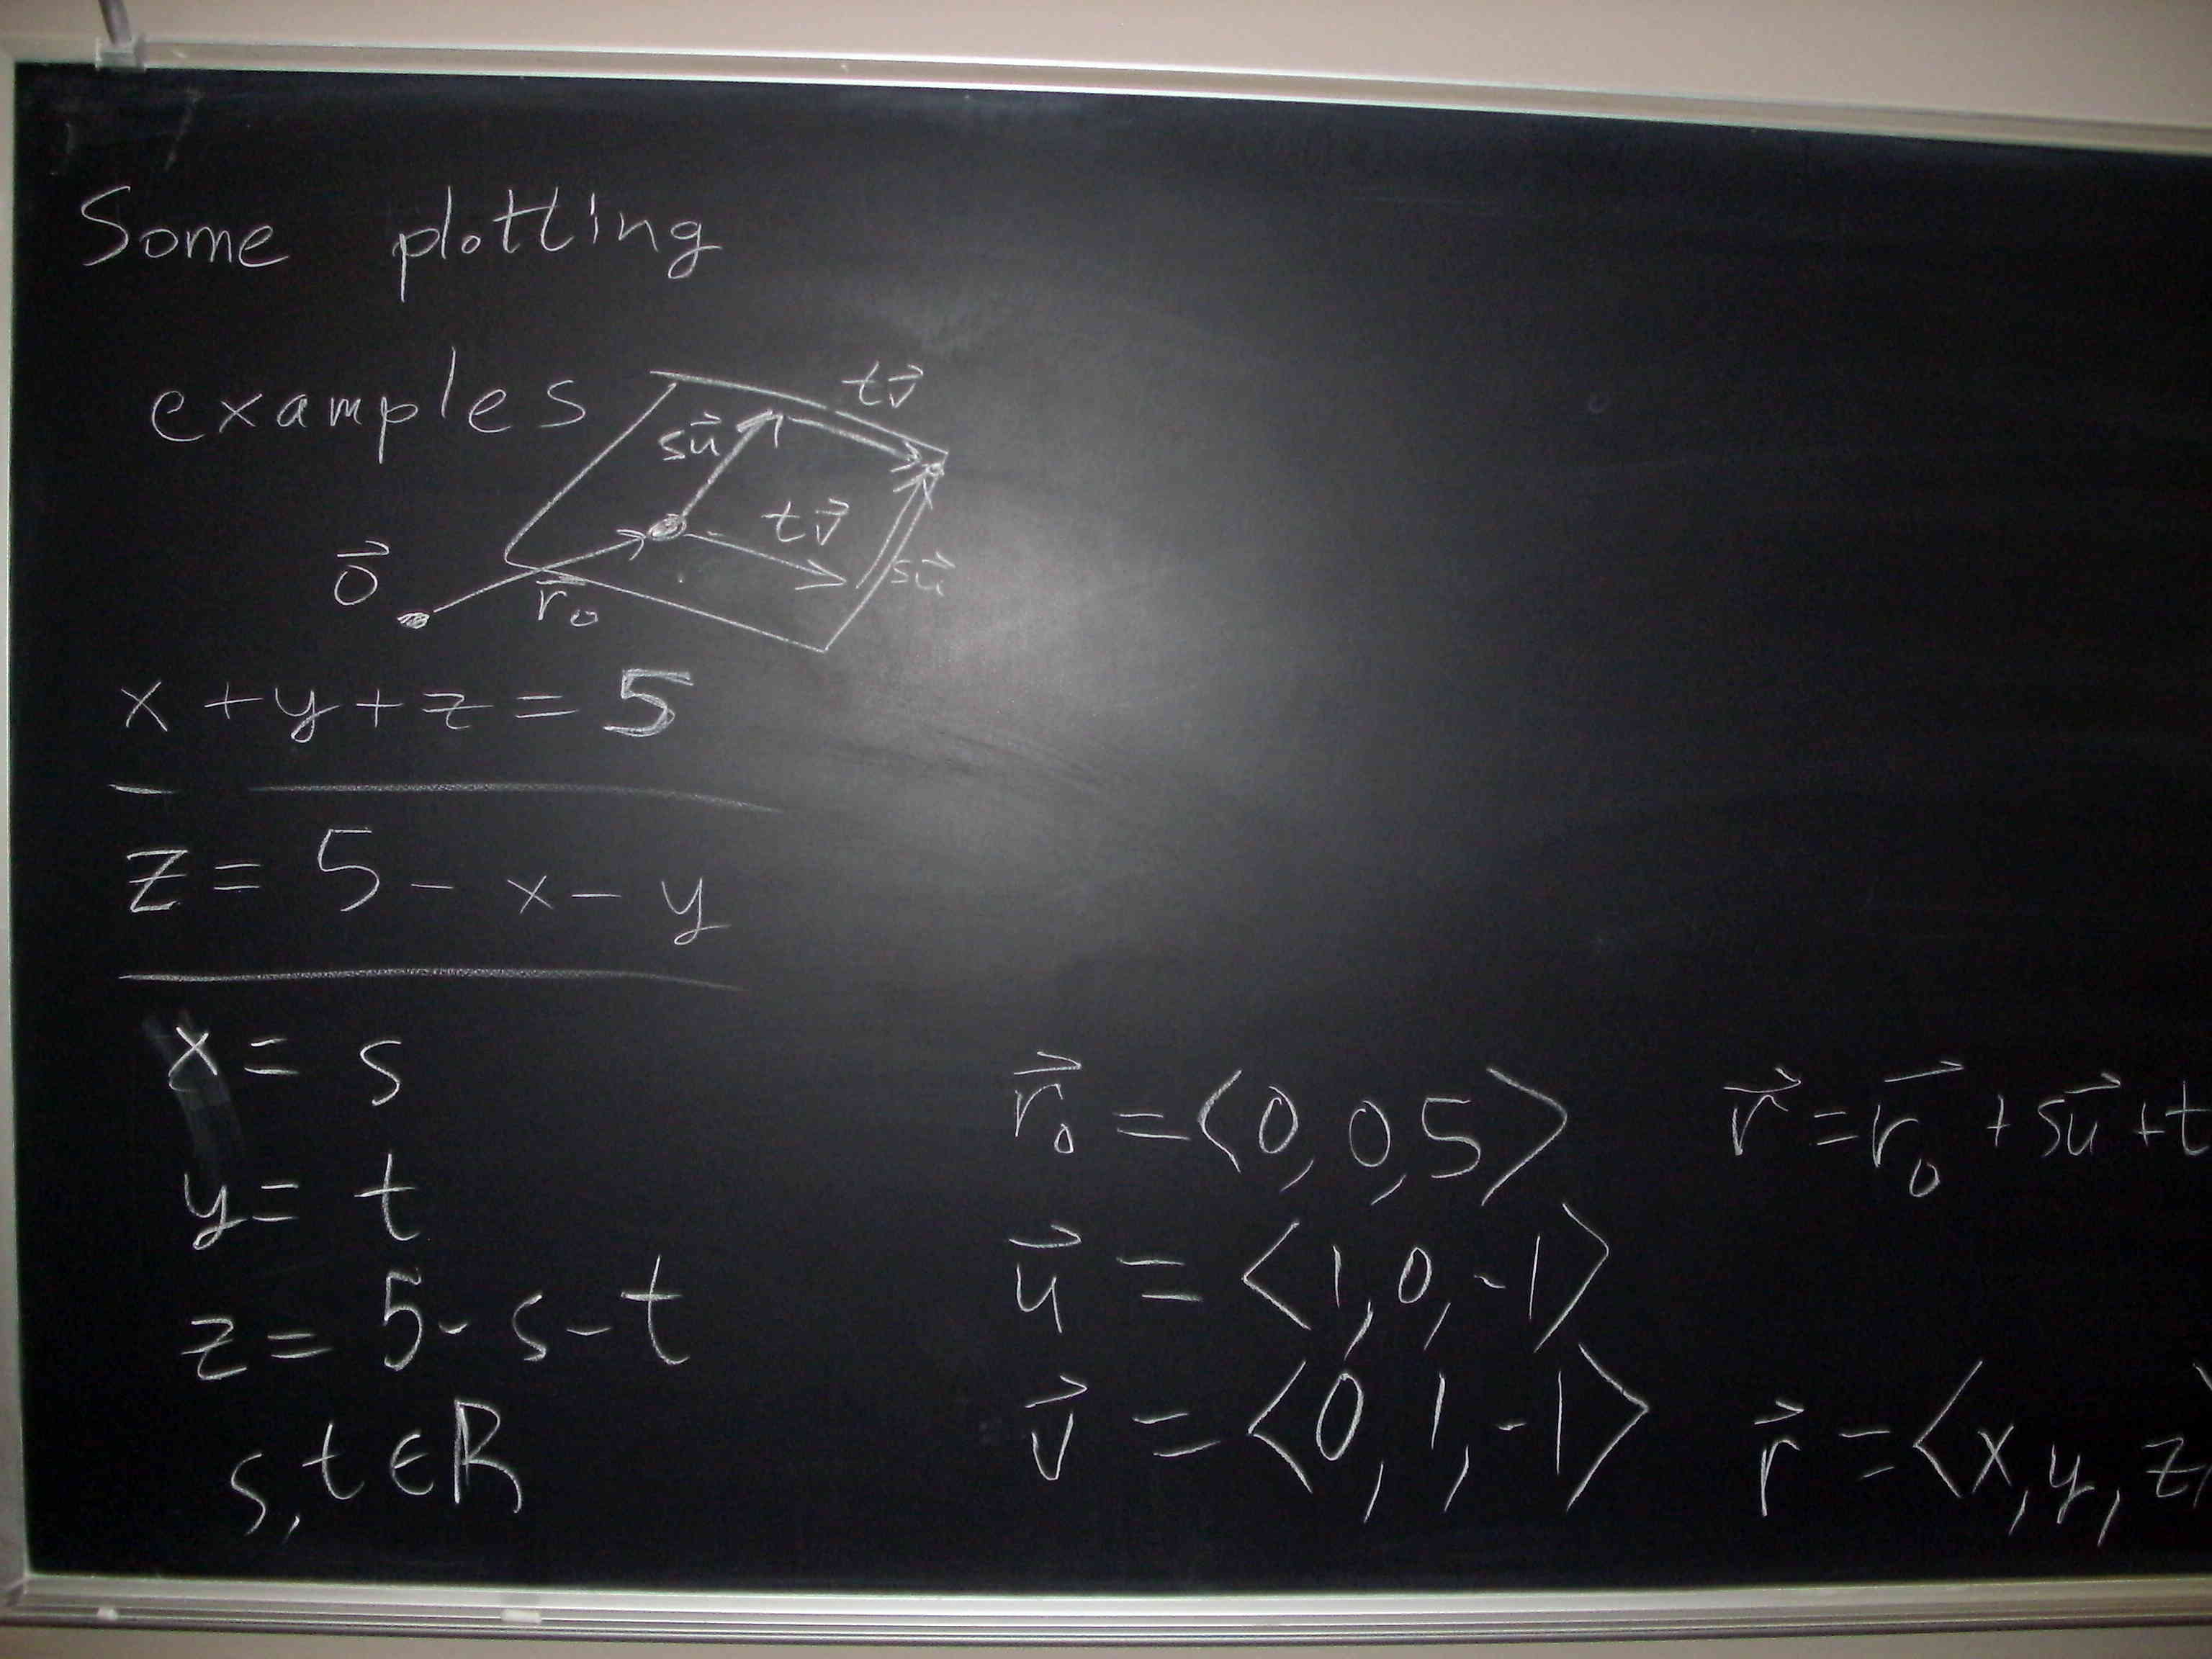 Some plotting
examples
t v⃗
s u⃗
t v⃗
s u⃗
0⃗
r⃗₀
x + y + z = 5
z = 5 - x - y
x = s
y = t
z = 5 - s - t
s, t ∈ R
r⃗₀ = ⟨0, 0, 5⟩
u⃗ = ⟨1, 0, -1⟩
v⃗ = ⟨0, 1, -1⟩
r⃗ = r⃗₀ + s u⃗ + t
r⃗ = ⟨x, y, z⟩